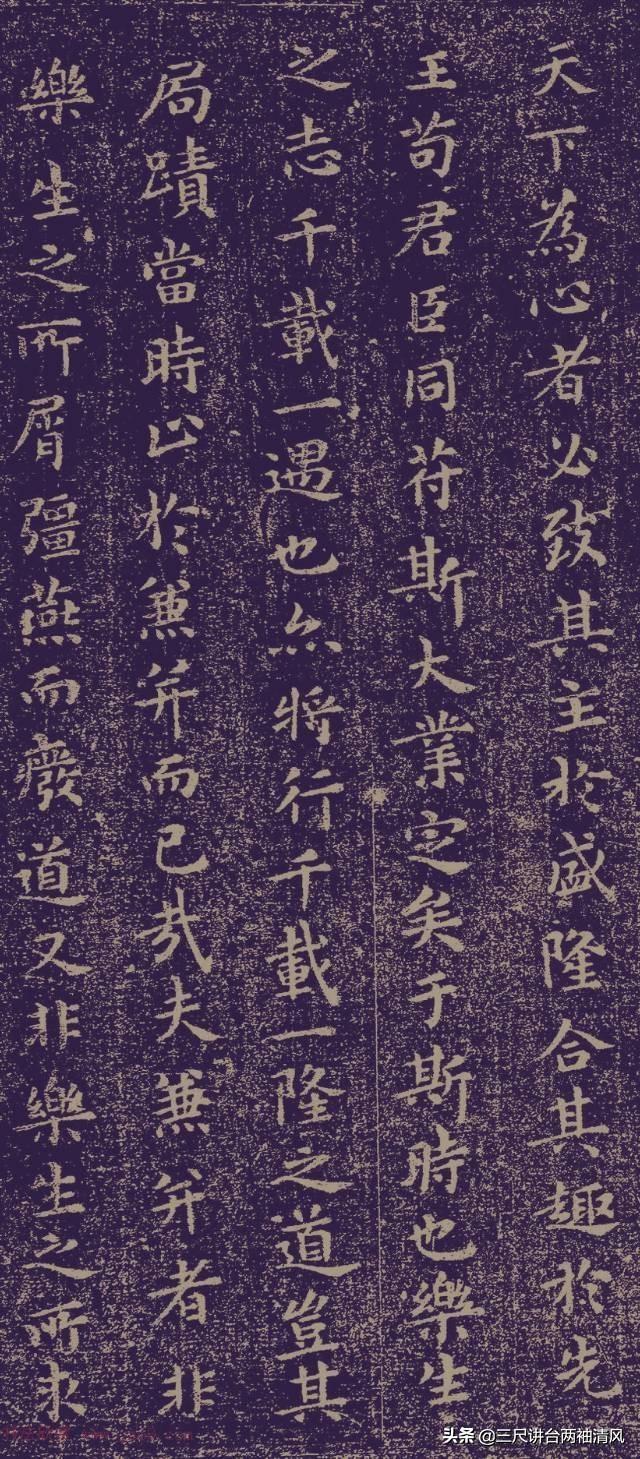 天下為心者必致其主於盛隆合其趣於先
王苟君臣同符斯大業定矣于斯時也樂生
之志千載一遇也亦將行千載一隆之道豈其
局蹟當時止於兼并而已哉夫兼并者非
樂生之所屑彊燕而廢道又非樂生之所求
头条 @三尺讲台两袖清风